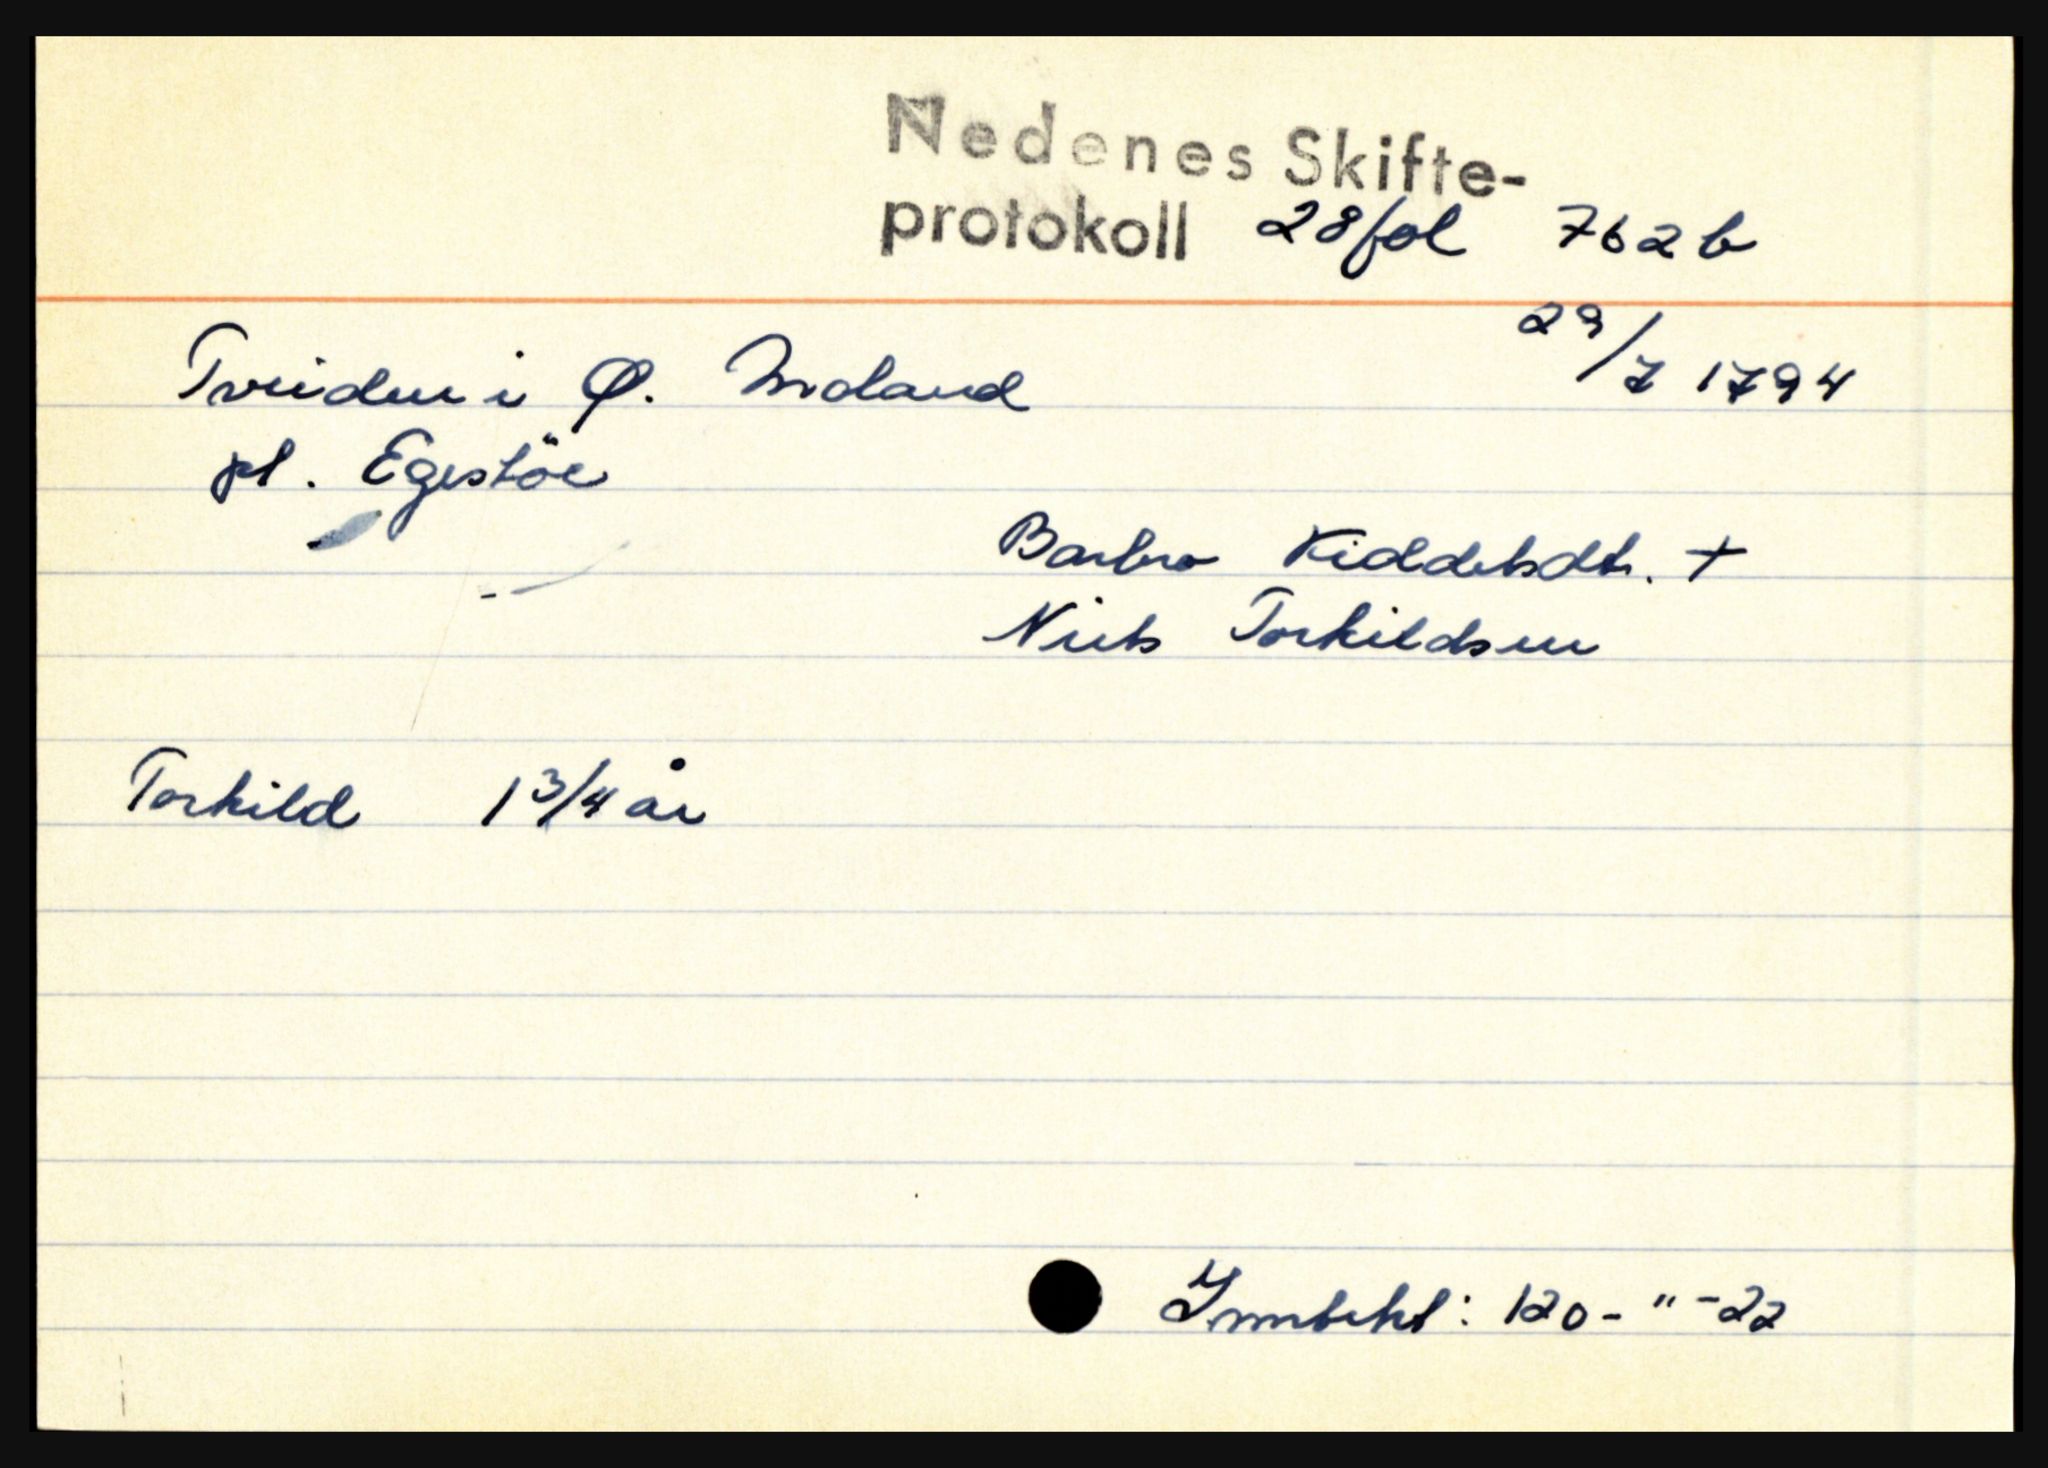 Nedenes Skifte-
protokoll 28 fol 762b
29/7 1794
Tveiden i Ø. Moland
pl. Egestöe
Barbro Kiddelsdt. +
Niels Torkildsen
Torkild 1 3/4 år
Inntekt: 120 - " - 22